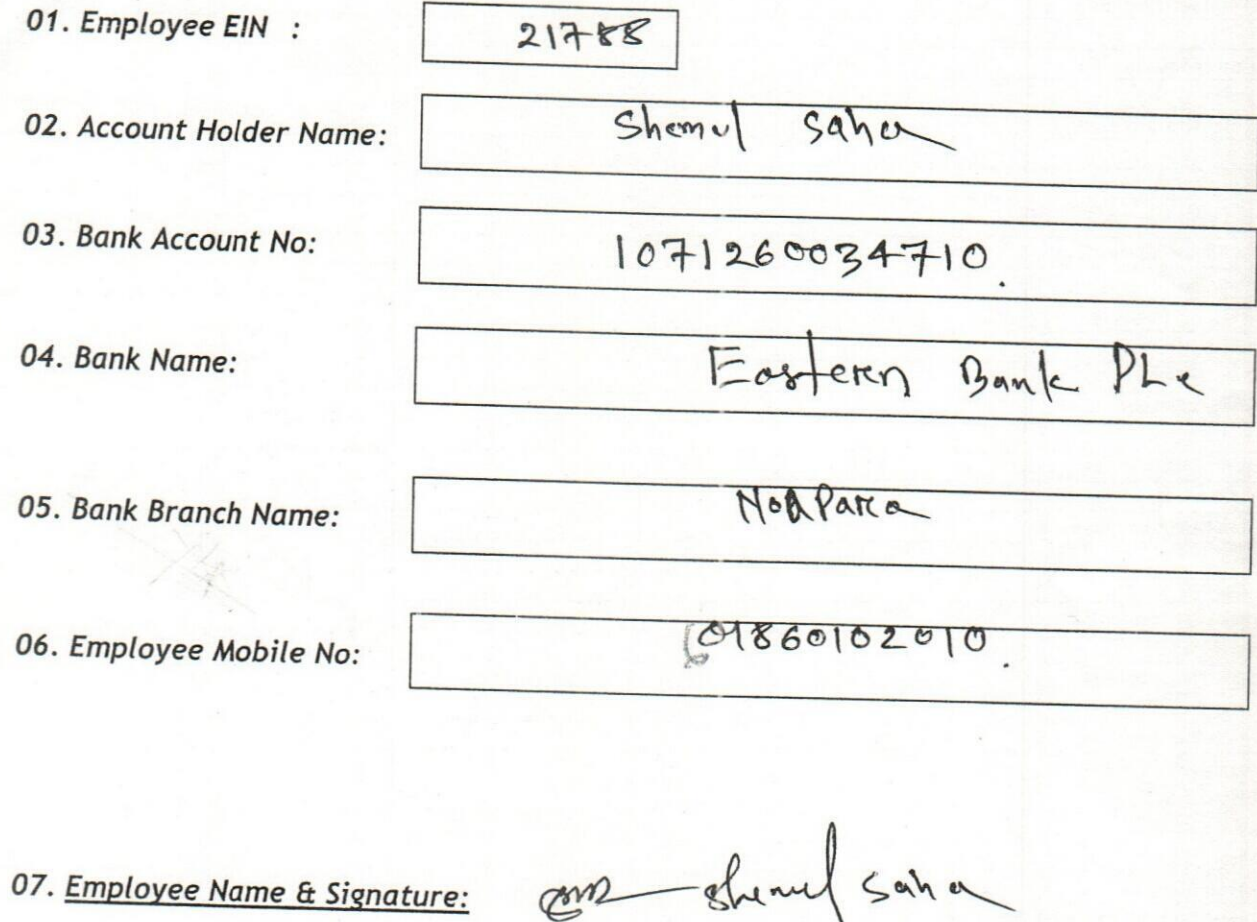 01. Employee EIN : 21788
02. Account Holder Name: Shemul saha
03. Bank Account No: 1071260034710.
04. Bank Name: Eastern Bank PLc
05. Bank Branch Name: Noapara
06. Employee Mobile No: 01860102010.
07. Employee Name & Signature: Shemul saha